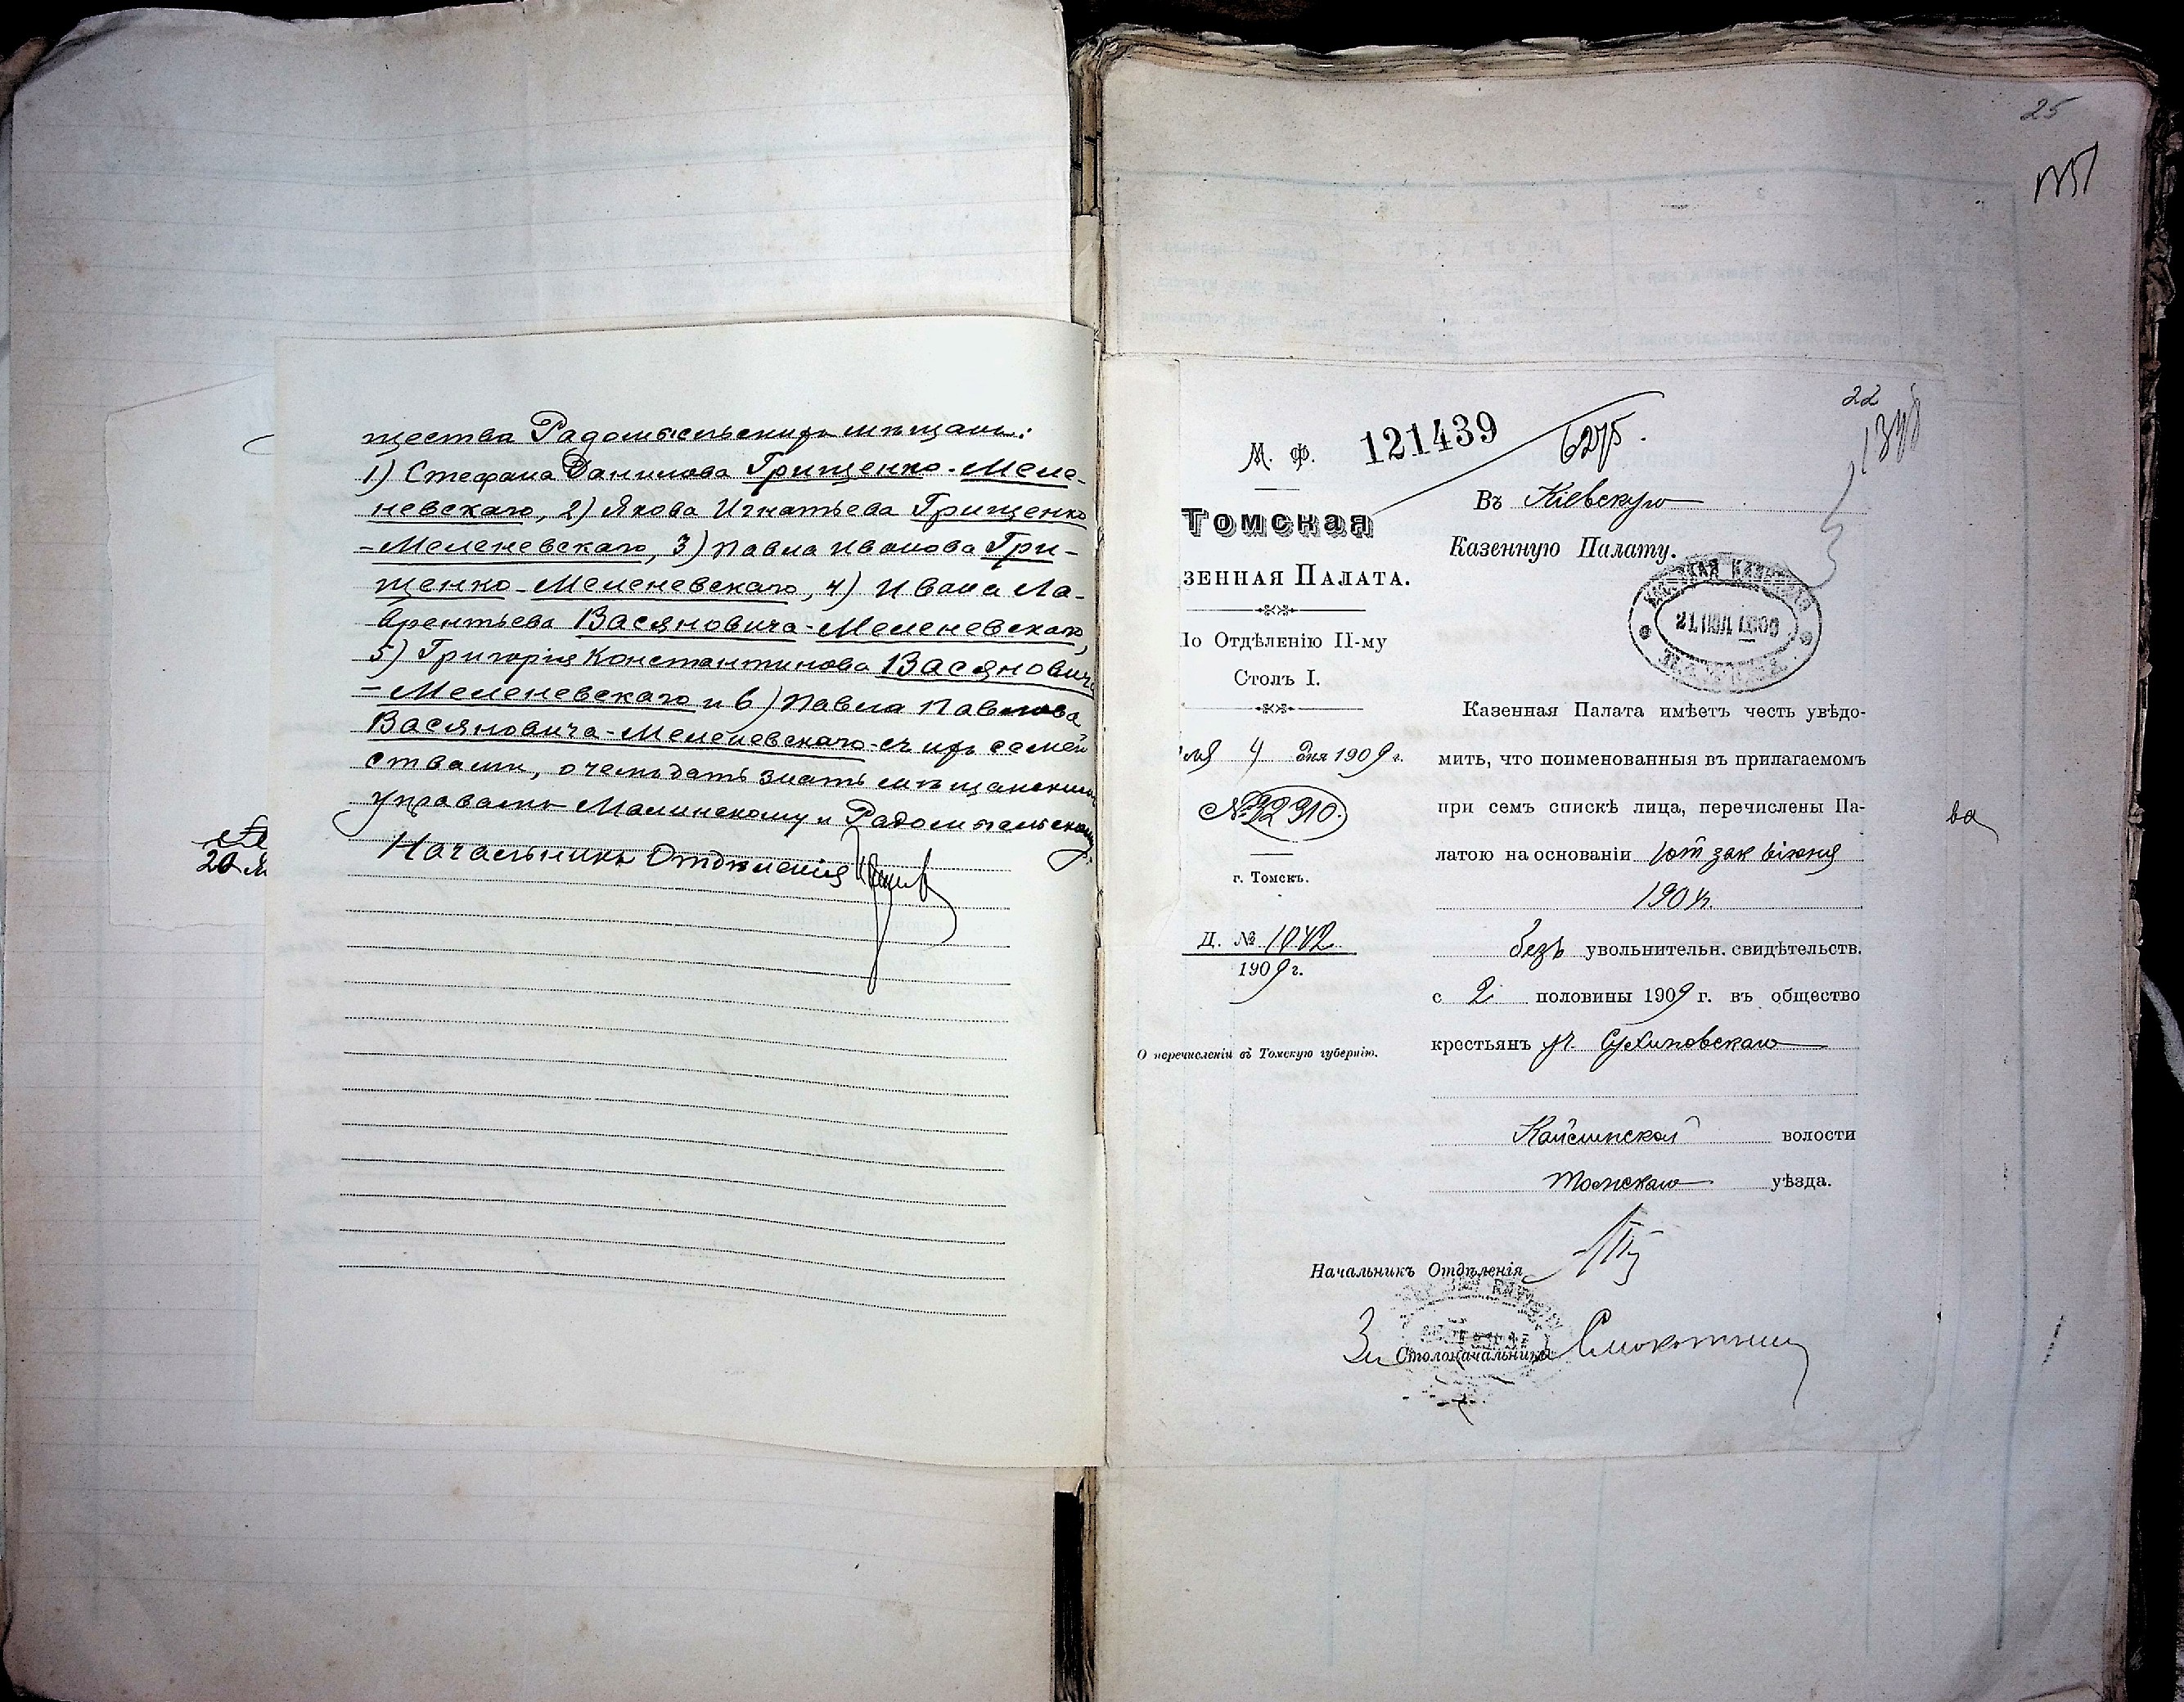 щества Радомысльскихъ мѣщанъ:
1) Стефана Данилова Грищенко-Меле-
невскаго, 2) Якова Игнатьева Грищенко
-Меленевскаго, 3) Павла Иванова Гри-
щенко-Меленевскаго, 4) Ивана Ла-
врентьева Васяновича-Меленевскаго,
5) Григорія Константинова Васянович
-Меленевскаго и 6) Павла Павлова
Васяновича-Меленевскаго-съ ихъ семей
ствами, о чемъ дать знать мѣщанскимъ
управамъ Малинскому и Радомысльскому.
Начальникъ Отдѣленія
20
25
22
М. Ф. 121439
6275.
Томская
ЗЕННАЯ ПАЛАТА.
По Отдѣленію II-му
Столъ I.
4 дня 1909 г.
№ 32910.
г. Томскъ.
Д. № 1042
1909 г.
О перечисленіи въ Томскую губернію.
Въ Кіевскую
Казенную Палату.
Казенная Палата имѣетъ честь увѣдо-
мить, что поименованныя въ прилагаемомъ
при семъ спискѣ лица, перечислены Па-
латою на основаніи зак 6 іюня
1904 г.
безъ увольнительн. свидѣтельств.
с 2 половины 1909 г. въ общество
крестьянъ
волости
Томскаго уѣзда.
Начальникъ Отдѣленія
За Столоначальника
ва